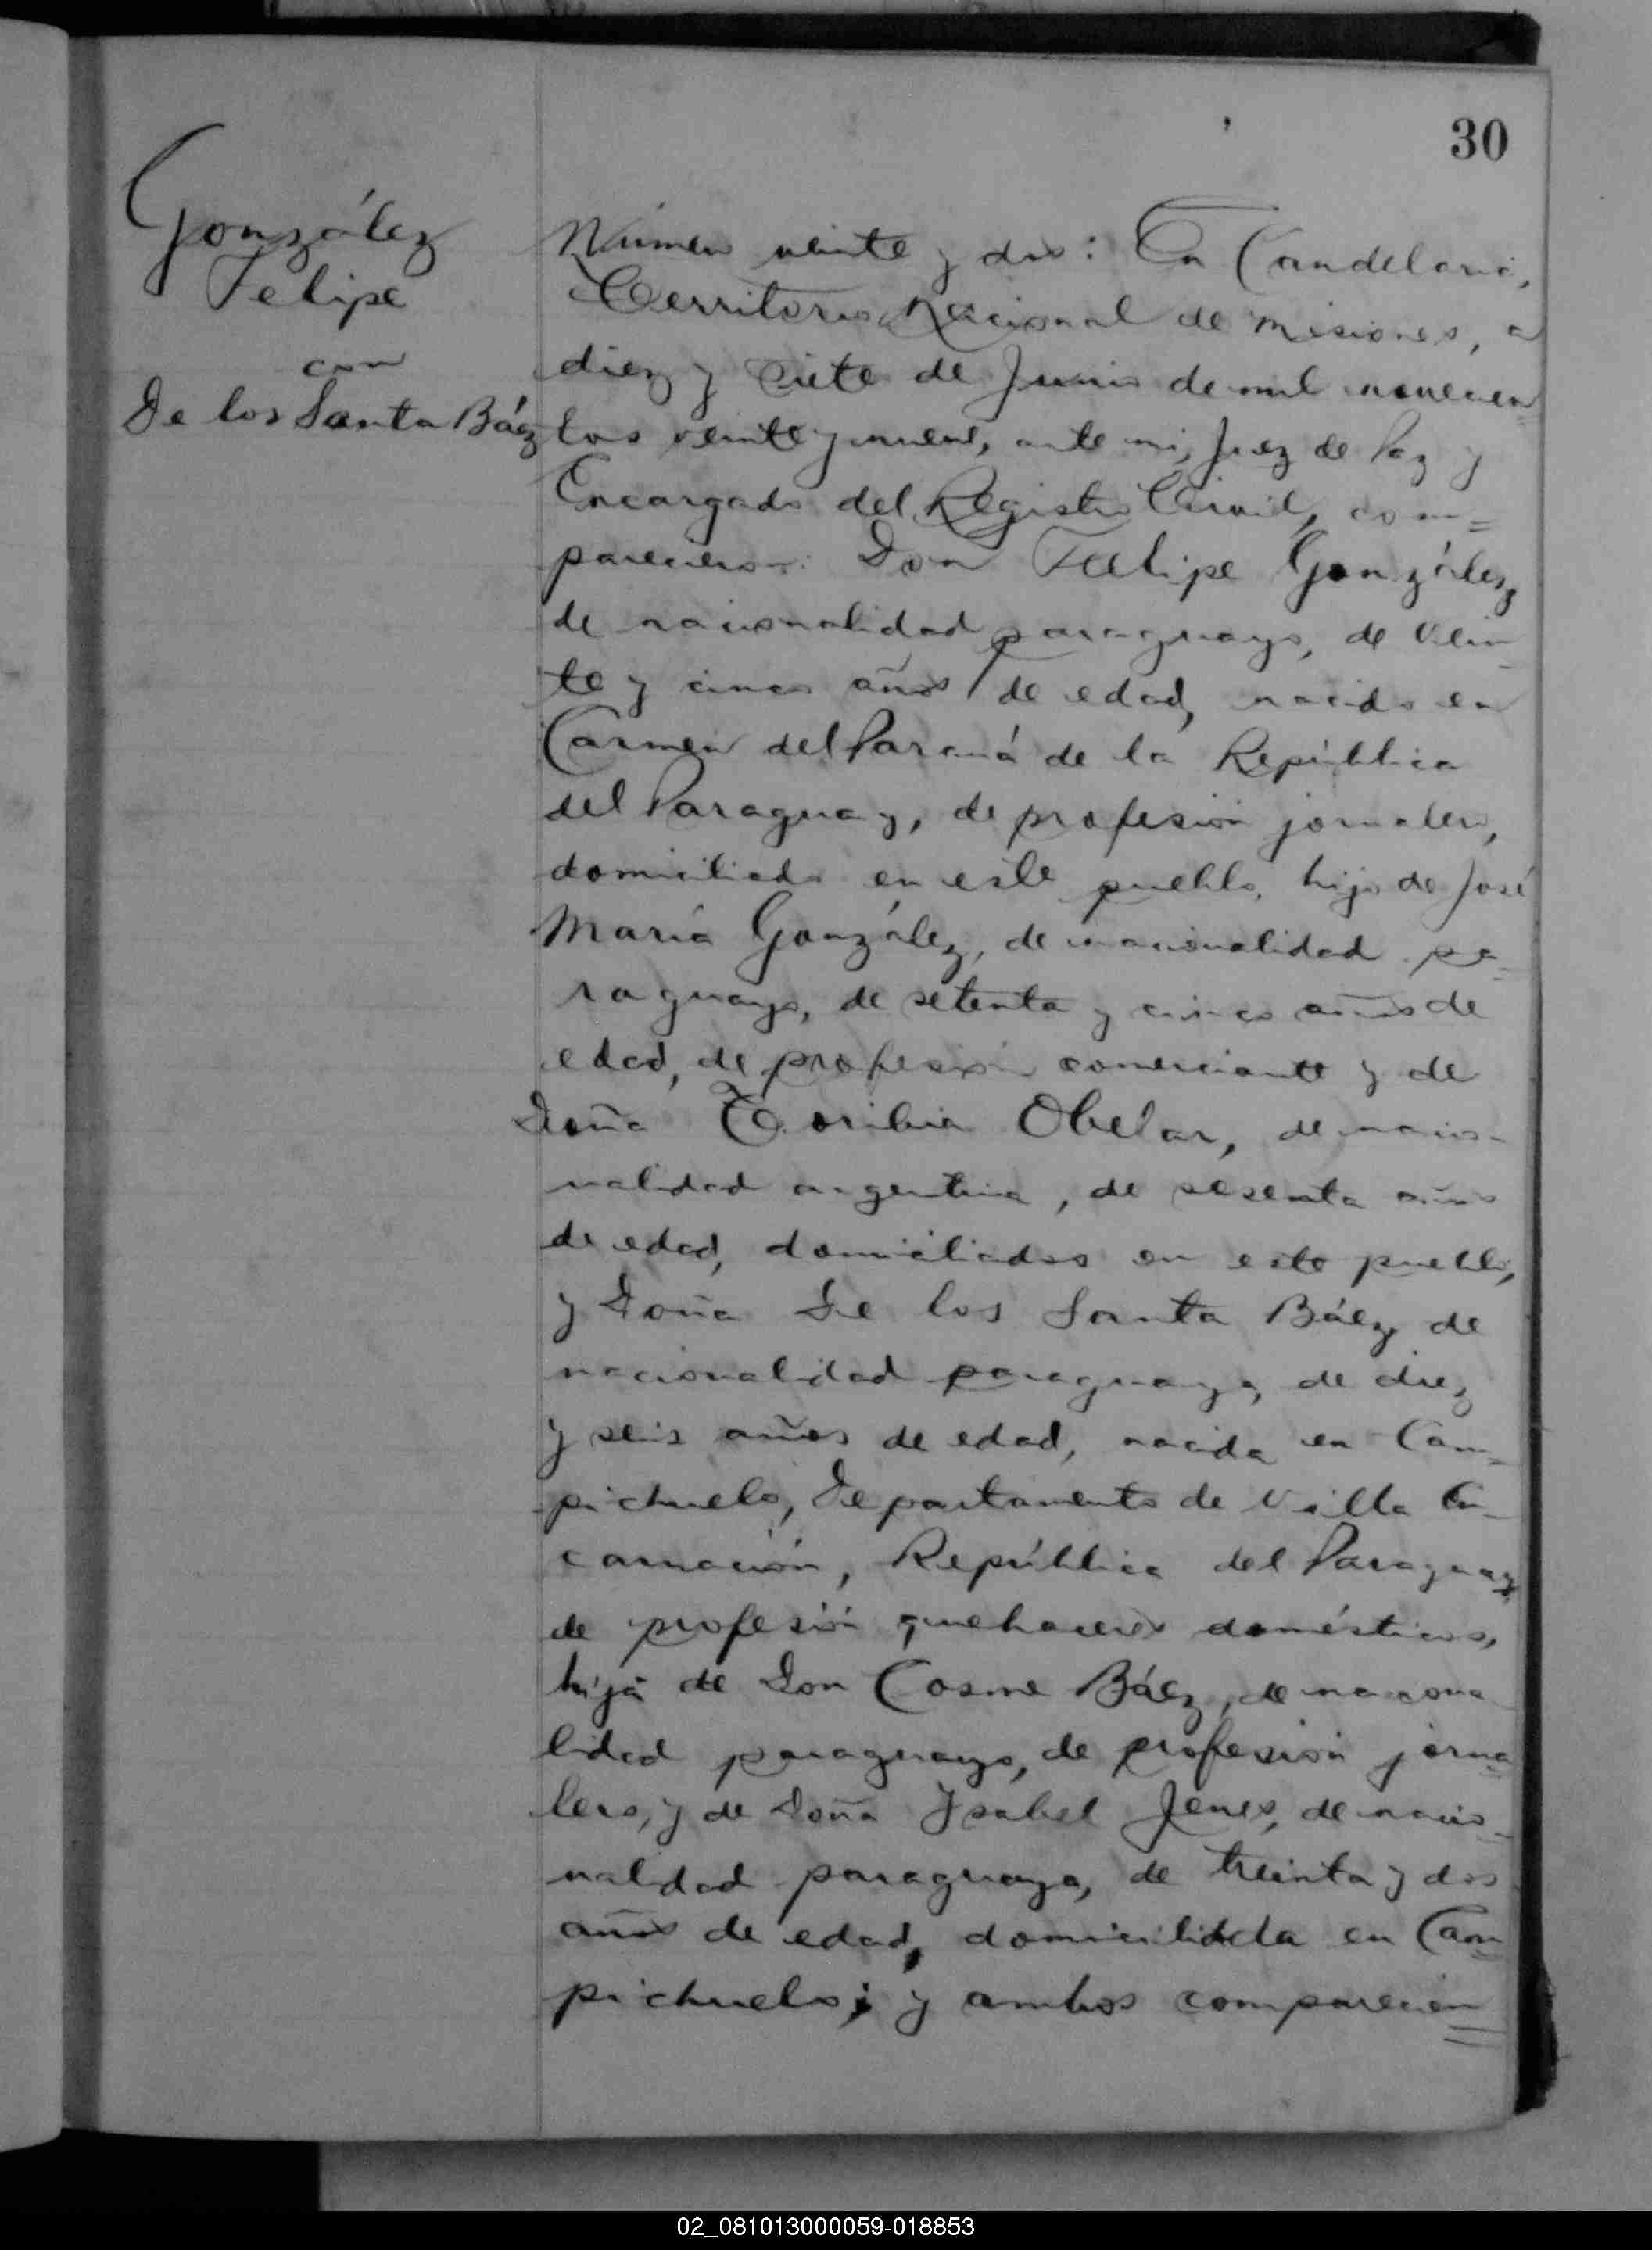 30
González
Felipe
con
De los Santa Báez
Número veinte y dos: En Candelaria,
Territorio Nacional de Misiones, a
diez y siete de Junio de mil novecien=
tos veinte y nueve, ante mí, Juez de Paz y
Encargado del Registro Civil, com=
parecieron: Don Felipe González,
de nacionalidad paraguayo, de vein-
te y cinco años de edad, nacido en
Carmen del Paraná de la República
del Paraguay, de profesión jornalero,
domiciliado en este pueblo, hijo de José
María González, de nacionalidad pa=
raguayo, de setenta y cinco años de
edad, de profesión comerciante y de
Doña Toribia Obelar, de nacio-
nalidad argentina, de sesenta años
de edad, domiciliados en este pueblo,
y Doña De los Santa Báez, de
nacionalidad paraguaya, de diez
y seis años de edad, nacida en Cam=
pichuelo, Departamento de Villa En-
carnación, República del Paraguay,
de profesión quehaceres domésticos,
hija de Don Cosme Báez, de naciona
lidad paraguayo, de profesión jorna=
lero, y de Doña Ysabel Jenes, de nacio-
nalidad paraguaya, de treinta y dos
años de edad, domicilidada en Cam=
pichuelo; y ambos comparecien=
02_081013000059-018853